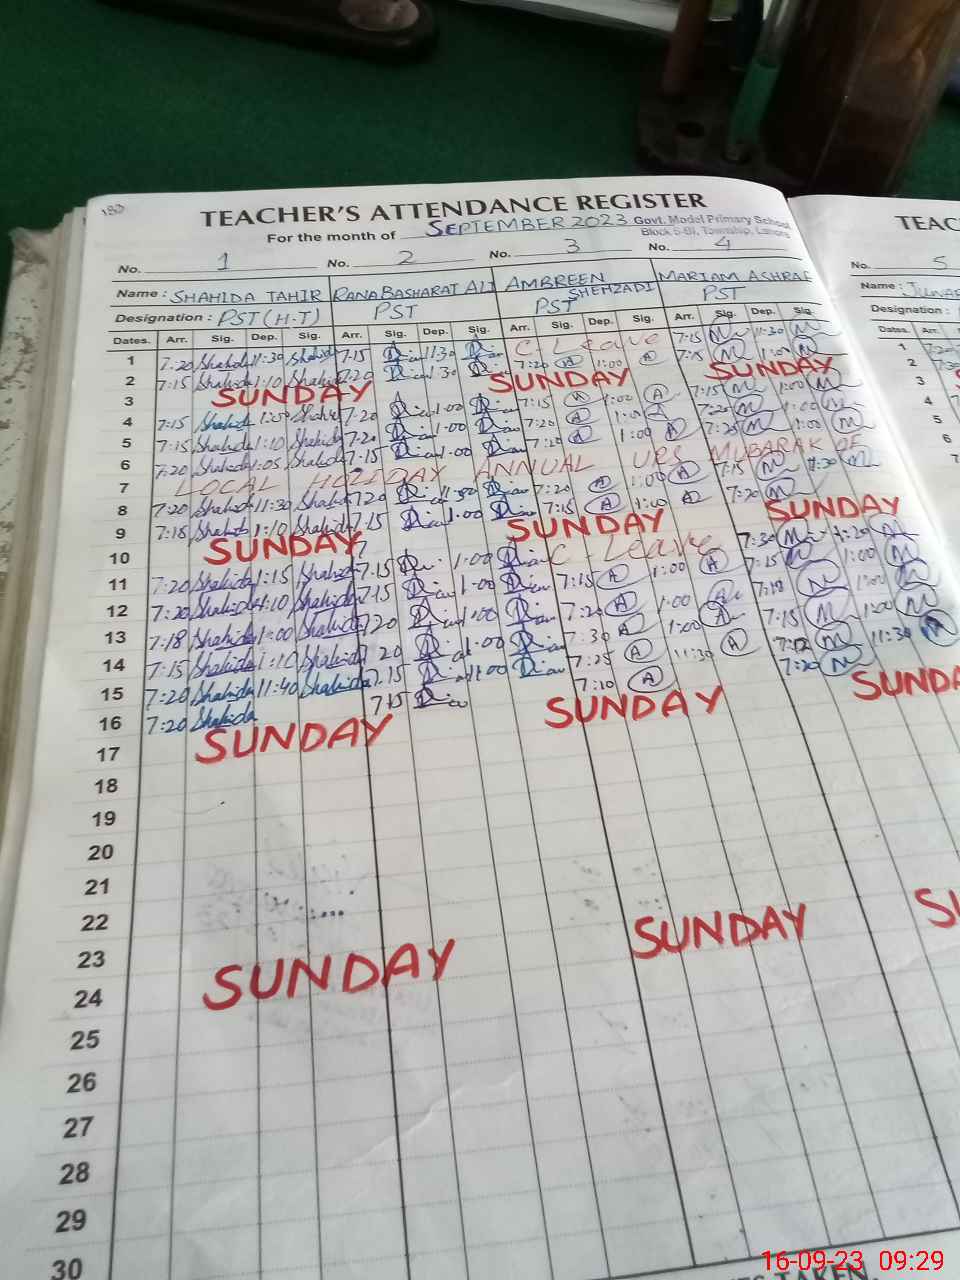 183
TEACHER'S ATTENDANCE REGISTER
For the month of SEPTEMBER 2023 Govt. Model Primary School
Block 5-BI, Township, Lahore
No. 1 No. 2 No. 3 No. 4
Name : SHAHIDA TAHIR RANA BASHARAT ALI AMBREEN SHEHZADI MARIAM ASHRAF
Designation : PST (H.T) PST PST PST
Dates. Arr. Sig. Dep. Sig. Arr. Sig. Dep. Sig. Arr. Sig. Dep. Sig. Arr. Sig. Dep. Sig.
1 7:20 Shahida 11:30 Shahida 7:15 11:30 C. Leave 7:15 11:30
2 7:15 Shahida 1:10 Shahida 7:20 1:30 7:20 A 1:00 A 7:15 M 1:00 M
3 SUNDAY SUNDAY SUNDAY
4 7:15 Shahida Shahida 7:20 1:00 7:15 A 1:00 A 7:15 M 1:00 M
5 7:15 Shahida 1:10 Shahida 7:20 1:00 7:20 A A 7:20 M 1:00 M
6 7:20 Shahida 1:05 Shahida 7:15 1:00 7:20 A 1:00 A 7:25 M 1:00 M
7 LOCAL HOLIDAY ANNUAL URS MUBARAK OF
8 7:20 Shahida 11:30 Shahida 7:20 7:20 A A 7:15 M M
9 7:18 Shahida 1:10 Shahida 7:15 1:00 7:15 A 1:00 A 7:20 M
10 SUNDAY SUNDAY SUNDAY
11 7:20 Shahida 1:15 Shahida 7:15 1:00 C. Leave 7:30 M
12 7:20 Shahida 1:10 Shahida 7:15 1:00 7:15 A 1:00 A 7:15 M 1:00 M
13 7:18 Shahida 1:00 Shahida 7:20 1:00 7:20 A 1:00 A 7:18 M 1:00 M
14 7:15 Shahida 1:10 Shahida 7:20 1:00 7:30 A 1:00 A 7:15 M 1:00 M
15 7:20 Shahida 11:40 Shahida 7:15 7:25 A 11:30 A 7:12 M 11:30 M
16 7:20 Shahida 7:15 7:10 A 7:20 M
17 SUNDAY SUNDAY SUNDA
18
19
20
21
22
23
24 SUNDAY SUNDAY SU
25
26
27
28
29
30
TEAC
No. 5
Name :
Designation :
Dates. Arr.
1
2
3
4
5
6
7
16-09-23 09:29
TAKEN